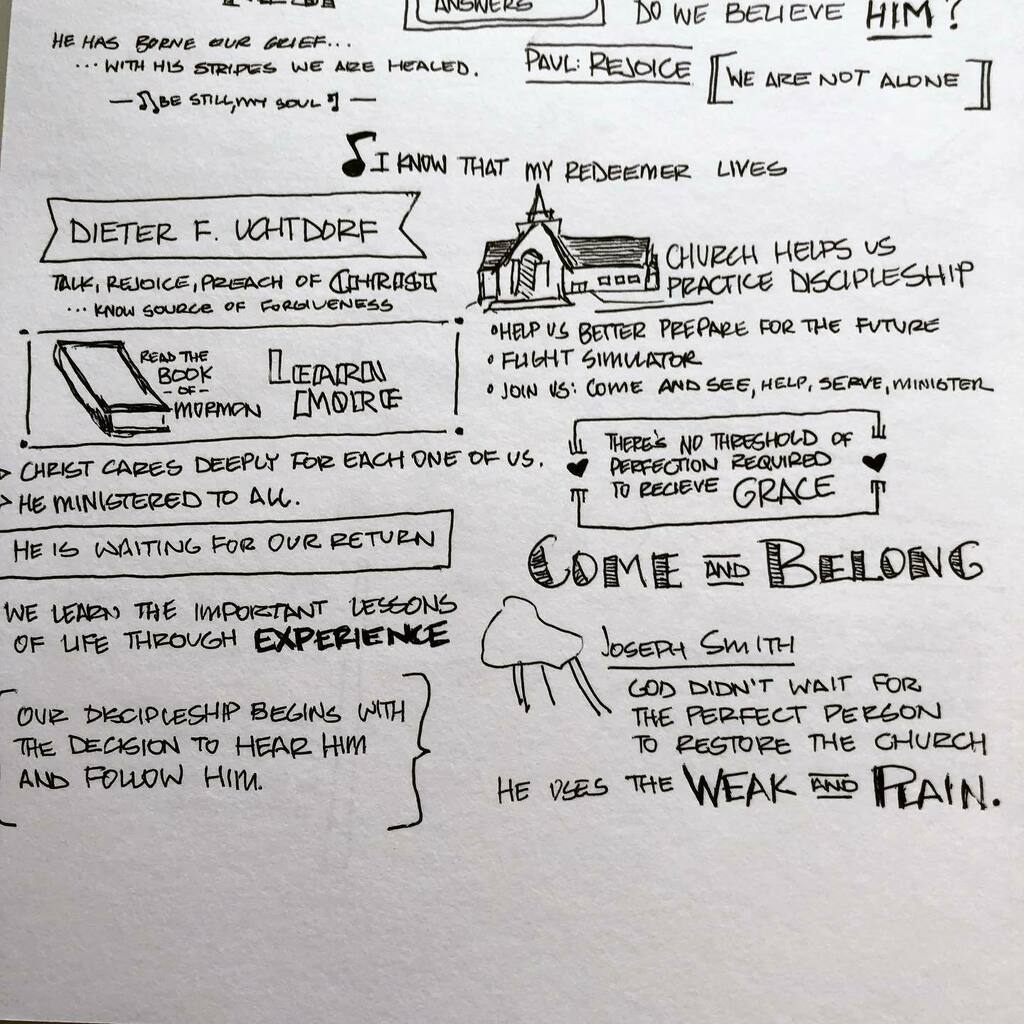 ANSWERS
DO WE BELIEVE HIM?
HE HAS BORNE OUR GRIEF...
...WITH HIS STRIPES WE ARE HEALED.
— ♫BE STILL, MY SOUL♫ —
PAUL: REJOICE
[WE ARE NOT ALONE]
♪I KNOW THAT MY REDEEMER LIVES
DIETER F. UCHTDORF
TALK, REJOICE, PREACH OF CHRIST
...KNOW SOURCE OF FORGIVENESS
READ THE
BOOK
-OF-
MORMON
LEARN
MORE
> CHRIST CARES DEEPLY FOR EACH ONE OF US.
> HE MINISTERED TO ALL.
HE IS WAITING FOR OUR RETURN
WE LEARN THE IMPORTANT LESSONS
OF LIFE THROUGH EXPERIENCE
{OUR DISCIPLESHIP BEGINS WITH
THE DECISION TO HEAR HIM
AND FOLLOW HIM.}
CHURCH HELPS US
PRACTICE DISCIPLESHIP
•HELP US BETTER PREPARE FOR THE FUTURE
• FLIGHT SIMULATOR
• JOIN US: COME AND SEE, HELP, SERVE, MINISTER
THERE'S NO THRESHOLD OF
PERFECTION REQUIRED
TO RECIEVE GRACE
COME AND BELONG
JOSEPH SMITH
GOD DIDN'T WAIT FOR
THE PERFECT PERSON
TO RESTORE THE CHURCH
HE USES THE WEAK AND PLAIN.